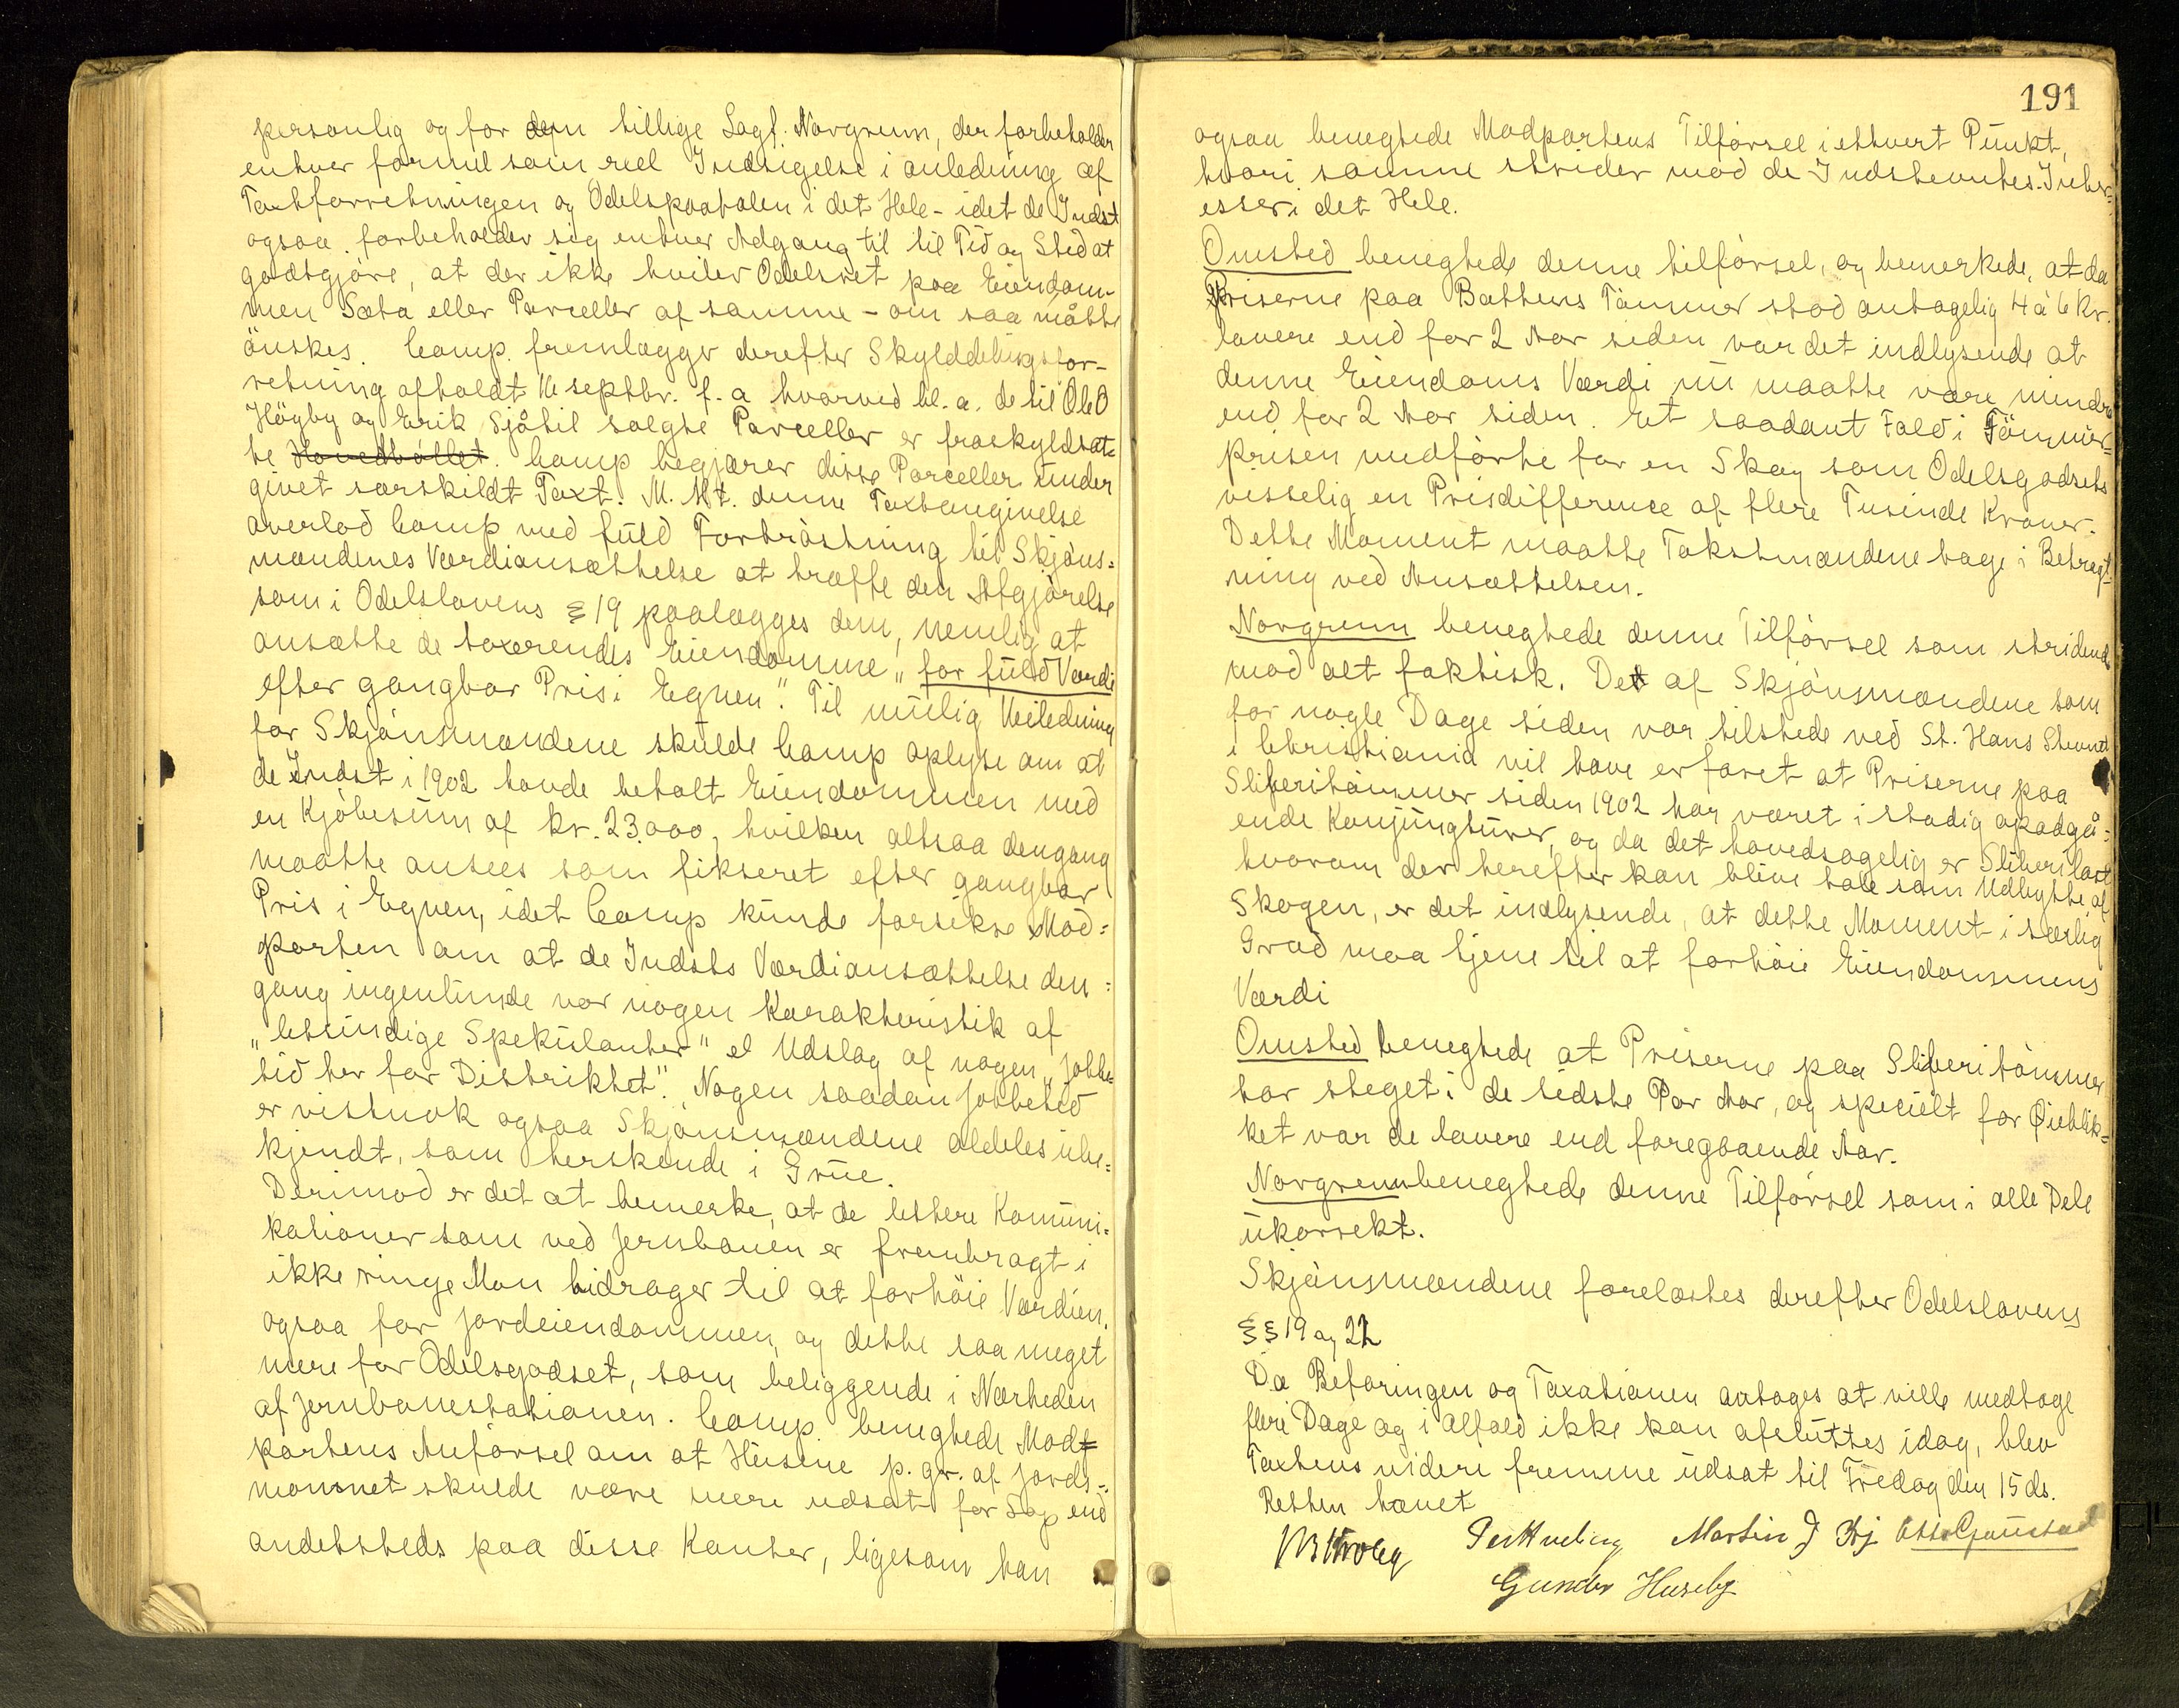 personlig og for dem tillige Sagf. Norgrenn, der forbeholder
enhver formel som reel Indsigelse i anledning af
Taxtforretningen og Odelspaatalen i det Hele - idet de Indst
ogsaa forbeholder sig enhver Adgang til til Tid og Sted at
godtgjöre, at der ikke hviler Odelsret paa Eiendom-
men Sæta eller Parceller af samme - om saa måtte
önskes. Comp. fremlægger derefter Skylddelingsfor-
retning afholdt 16 septbr. f. a hvorved bl. a. de til Ole O
Högby og Erik Sjåtil solgte Parceller er fraskyldsat-
te Hovedbøllet. Comp begjærer disse Parceller under
givet særskildt Taxt. M. H t. denne Taxtangivelse
overlod Comp med fuld Fortröstning til Skjöns=
mændenes Værdiansættelse at træffe den Afgjörelse
som i Odelslovens § 19 paalægges dem, nemlig at
ansætte de taxerendes Eiendomme "for fuld Værdi
efter gangbar Pris i Egnen". Til mulig Veiledning
for Skjönsmændene skulde Comp oplyse om at
de Indst i 1902 havde betalt Eiendommen med
en Kjöbesum af kr. 23.000, hvilken altsaa dengang
maatte ansees som fikseret efter gangbar
Pris i Egnen, idet Comp kunde forsikre Mod=
parten om at de Indsts Værdiansættelse den=
gang ingenlunde var nogen Karakteristik af
"letsindige Spekulanter" el Udslag af nogen "Jobbe=
tid her for Distriktet". Nogen saadan Jobbetid
er vistnok ogsaa Skjönsmændene aldeles ube=
kjendt, som herskende i Grue.
Derimod er det at bemerke, at de lettere Komuni=
kationer som ved Jernbanen er frembragt i
ikke ringe Mon bidrager til at forhöie Værdien
ogsaa for Jordeiendommen, og dette saa meget
mere for Odelsgodset, som beliggende i Nærheden
af Jernbanestationen. Comp. benegtede Mod=
partens Anförsel om at Husene p. gr. af Jords-
monsnet skulde være mere udsat for Sop end
andetsteds paa disse Kanter, ligesom han
191
ogsaa benegtede Modpartens Tilförsel i ethvert Punkt,
hvori samme strider mod de Indstevntes Inter=
esser i det Hele.
Omsted benegtede denne tilförsel, og bemerkede, at da
Priserne paa Bathens Tömmer stod antagelig 4 à 6 kr.
lavere end for 2 Aar siden var det indlysende at
denne Eiendoms Værdi nu maatte være mindre
end for 2 Aar siden. Et saadant Fald i Tömmer=
prisen medförte for en Skog som Odelsgodsets
visselig en Prisdifference af flere Tusinde Kroner.
Dette Moment maatte Takstmændene tage i Betragt-
ning ved Ansættelsen.
Norgrenn benegtede denne Tilförsel som stridende
mod alt faktisk. De af Skjönsmændene som
for nogle Dage siden var tilstede ved St. Hans Stevnet
i Christiania vil have erfaret at Priserne paa
Sliberitömmer siden 1902 har været i stadig opadgå=
ende Konjungturer, og da det hovedsagelig er Sliberilast
hvorom der herefter kan blive tale som Udbytte af
Skogen, er det indlysende, at dette Moment i særlig
Grad maa tjene til at forhöie Eiendommens
Værdi
Omsted benegtede at Priserne paa Sliberitömmer
har steget i de sidste Par Aar, og specielt for Øieblik=
ket var de lavere end foregaaende Aar.
Norgrenn benegtede denne Tilförsel som i alle Dele
ukorrekt.
Skjönsmændene forelæstes derefter Odelslovens
§§ 19 og 22
Da Befaringen og Taxationen antages at ville medtage
flere Dage og i alfald ikke kan afsluttes idag, blev
Taxtens videre fremme udsat til Fredag den 15 ds.
Retten hævet
Martin J
Gunder Huseby